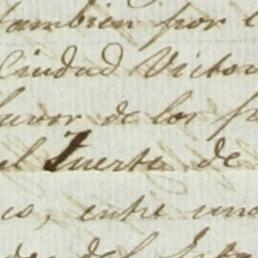 tambien por
Ciudad Victo
favor de los
el Fuerte de
entre un
del